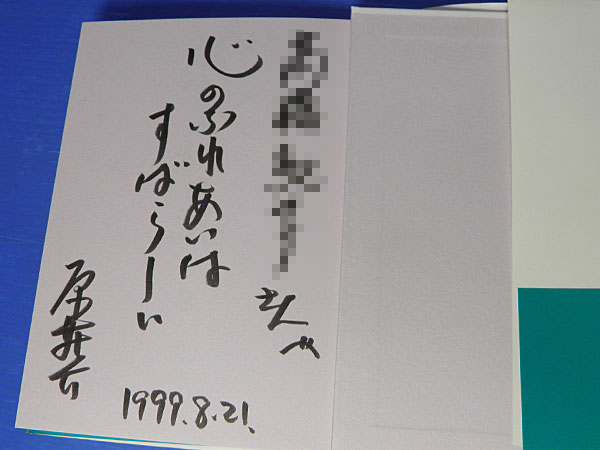 さんへ
心のふれあいは
すばらしい
1999.8.21.